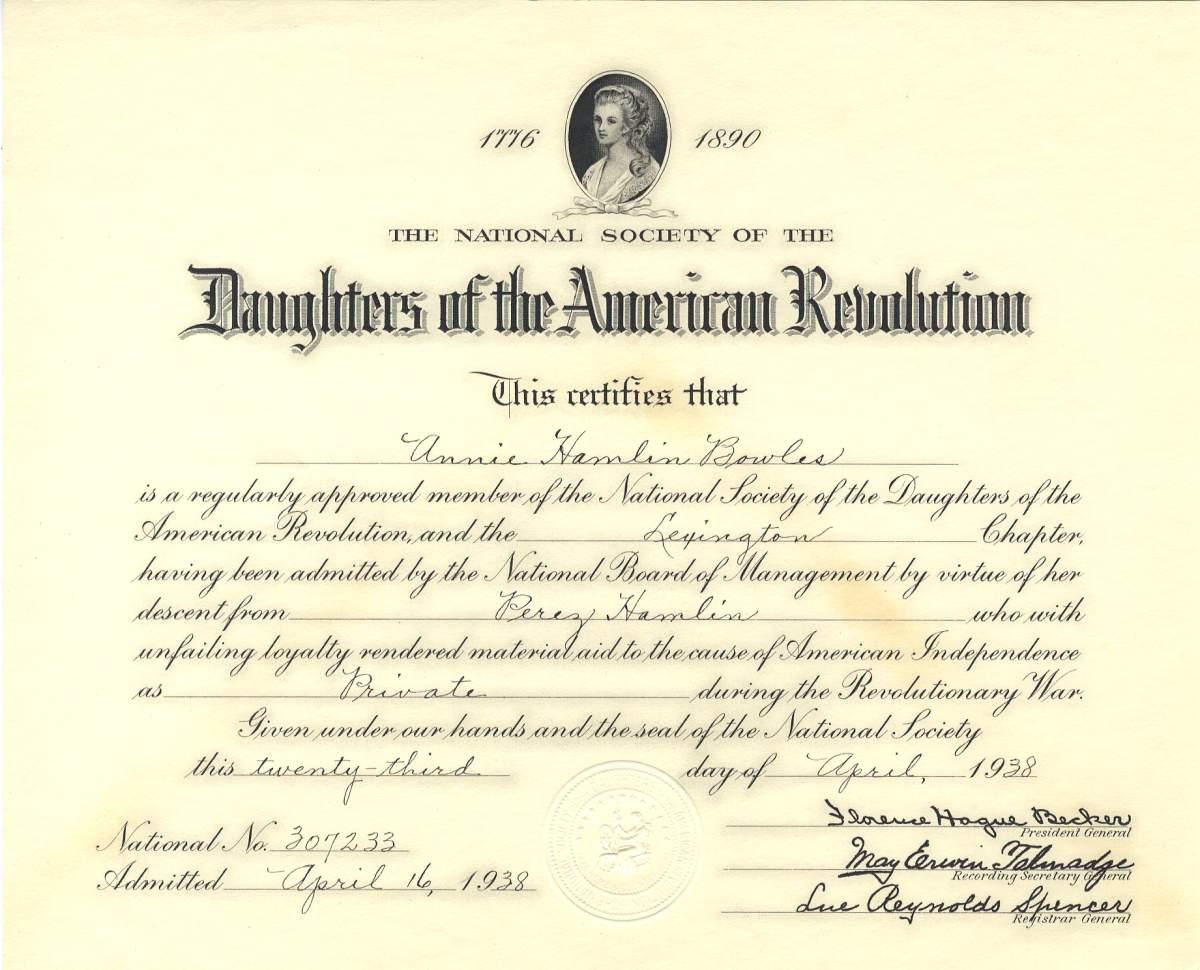 1776 1890
THE NATIONAL SOCIETY OF THE
Daughters of the American Revolution
This certifies that
Annie Hamlin Bowles
is a regularly approved member of the National Society of the Daughters of the
American Revolution, and the Lexington Chapter,
having been admitted by the National Board of Management by virtue of her
descent from Perez Hamlin who with
unfailing loyalty rendered material aid to the cause of American Independence
as Private during the Revolutionary War.
Given under our hands and the seal of the National Society
this twenty-third day of April, 1938
National No. 307233
Admitted April 16, 1938
Florence Hague Becker
President General
May Erwin Talmadge
Recording Secretary General
Lue Reynolds Spencer
Registrar General